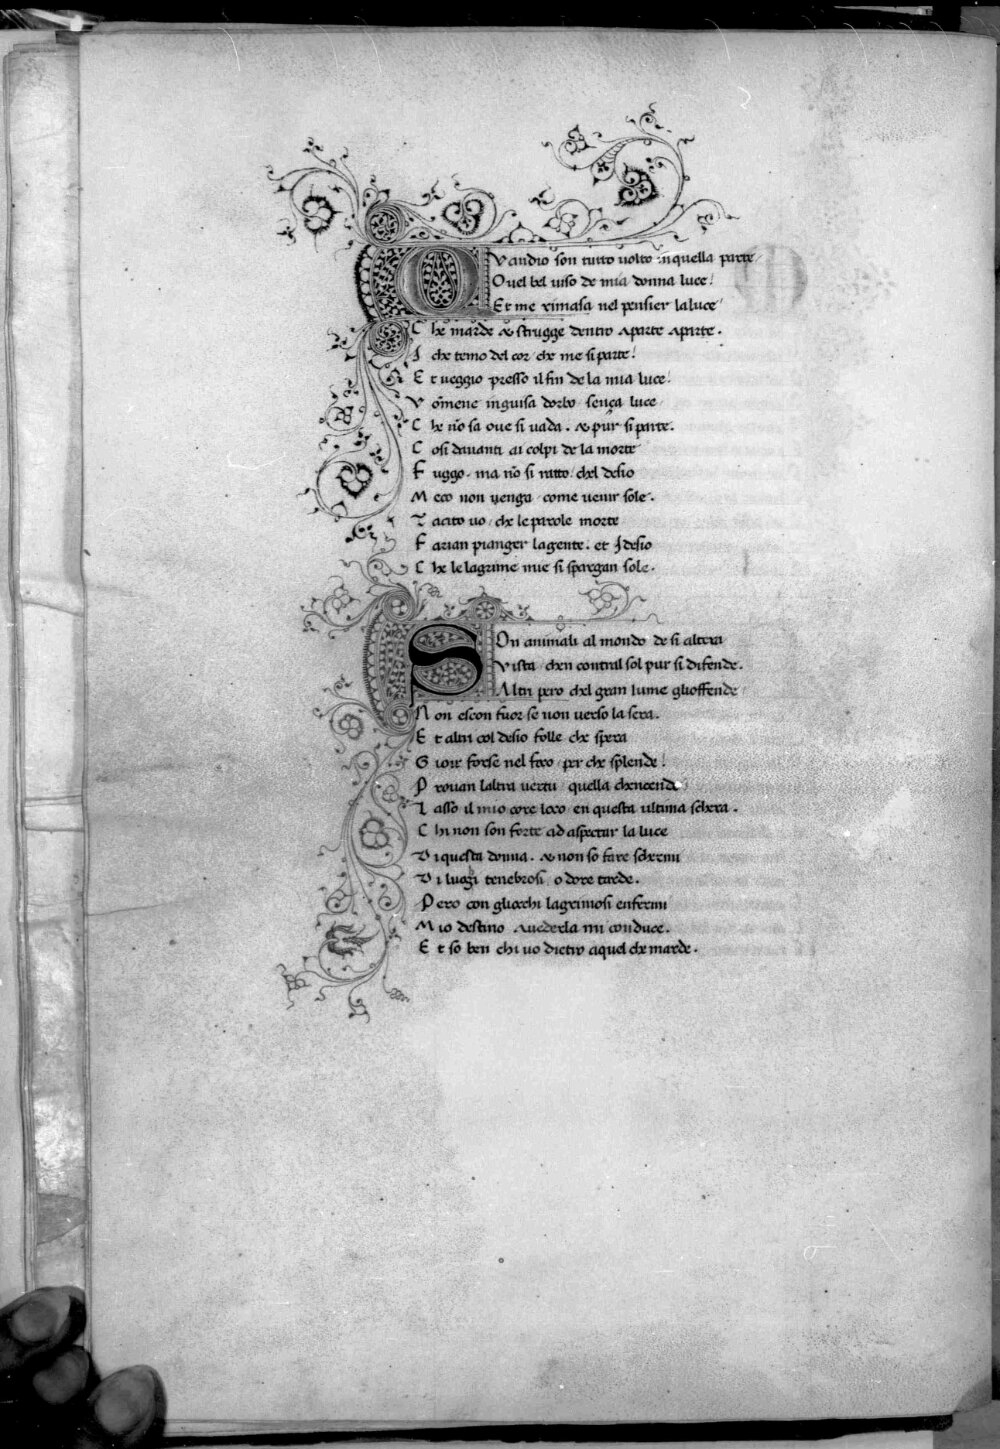 QVandio son tutto uolto inquella parte
Ouel bel uiso de mia donna luce!
Et me rimasa nel pensier laluce
C he marde & strugge dentro aparte aparte.
I che temo del cor che me si parte!
E t ueggio presso il fin de la mia luce!
V ōmene inguisa dorbo sença luce
C he nō sa oue si uada. & pur si parte.
C osi dauanti ai colpi de la morte
F uggo. ma nō si ratto. chel desio
M eco non uenga come uenir sole.
T acito uo, che le parole morte
F arian pianger lagente. et I desio
C he le lagrime mie si spargan sole.
SOn animali al mondo de si altera
Vista, chen contral sol pur si difende.
Altri pero chel gran lume glioffende
N on escon fuor se non uerso la sera.
E t altri col desio folle che spera
G ioir forse nel foco per che splende!
P rouan laltra uertu quella chencende
L asso il mio core loco en questa ultima schera.
C hi non son forte ad aspectar la luce
D i questa donna. & non so fare schermi
D i luogi tenebrosi o dore tarde.
P ero con gliocchi lagrimosi enfermi
M io destino auederla mi conduce.
E t so ben chi uo dietro aquel che marde.